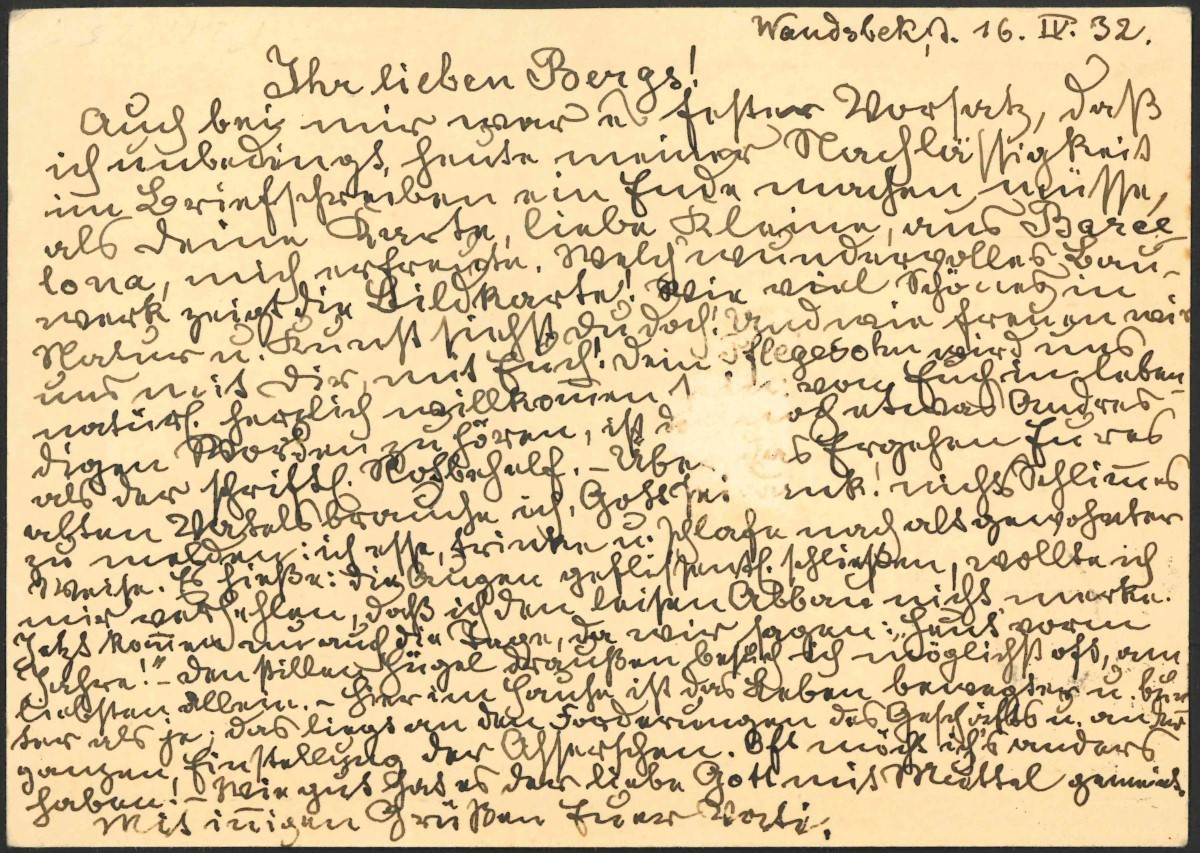 Wandsbek, d. 16. IV. 32.
Ihr lieben Bergs!
Auch bei mir war es fester Vorsatz, daß
ich unbedingt heute meiner Nachlässigkeit
im Briefschreiben ein Ende machen müsse,
als Deine Karte, liebe Kleine, aus Barce-
lona, mich erfreute. Welch wundervolles Bau-
werk zeigt die Bildkarte! Wie viel Schönes in
Natur u. Kunst siehst du doch! Und wie freuen wir
uns mit Dir, mit Euch! Dein Pflegesohn wird uns
natürl. herzlich willkom̄en von Euch in leben-
digen Worten zu hören, ist etwas Andres
als der schriftl. Notbehelf. – Übe Ergehen Eures
alten Vatels brauche ich, Gott sei nk! nichts Schlim̄es
zu melden: ich esse, trinke u. schlafe nach altgewohnter
Weise. Es hieße: die Augen geflissentl. schließen, wollte ich
mir verhehlen, daß ich den leisen Abbau nicht merke.
Jetzt kom̄en nur auch die Tage, da wir sagen: „Heut vorm
Jahre!" – Den stillen Hügel draußen besuch ich möglichst oft, am
liebsten allein. – Hier im Hause ist das Leben bewegter u.
ter als je; das liegt an den Forderungen des Geschäfts u. an der
ganzen Einstellung der Asserschen. Oft möcht ich's anders
haben! – Wie gut hat es der liebe Gott mit Muttel gemeint.
Mit in̄igen Grüßen Euer Vati.